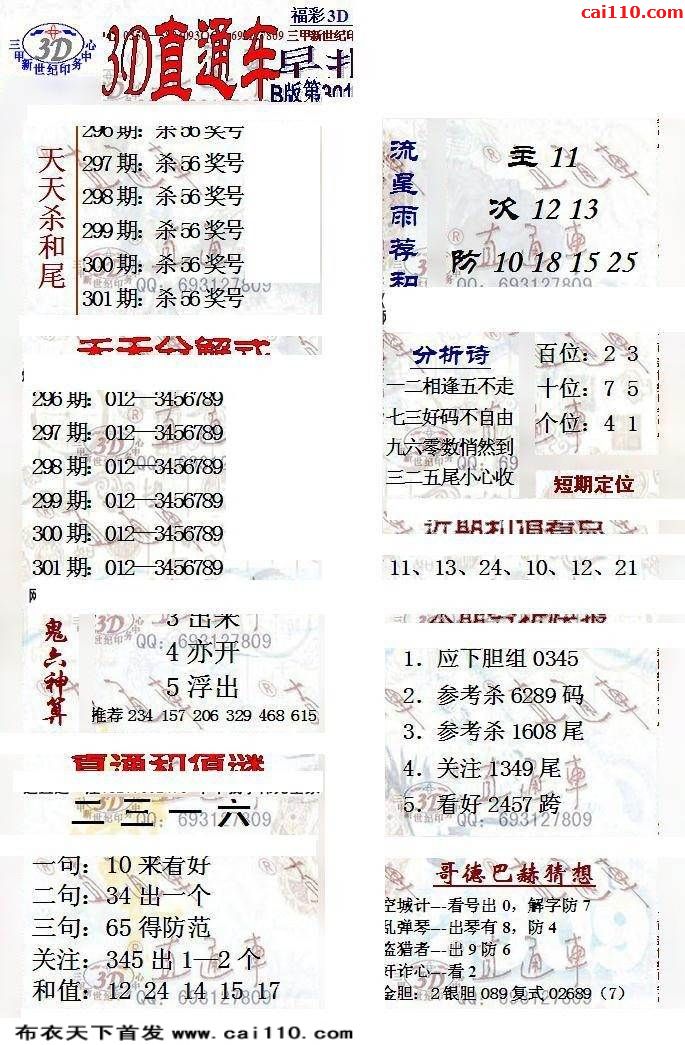 cai110.com
福彩3D
三甲新世纪印务中心
3D
3D直通车
早报
B版第301
天天杀和尾
296期：杀56奖号
297期：杀56奖号
298期：杀56奖号
299期：杀56奖号
300期：杀56奖号
301期：杀56奖号
QQ：693127809
流星雨荐和
主 11
次 12 13
防 10 18 15 25
QQ：693127809
天天分解式
296期：012—3456789
297期：012—3456789
298期：012—3456789
299期：012—3456789
300期：012—3456789
301期：012—3456789
分析诗
一二相逢五不走
七三好码不自由
九六零数悄然到
三二五尾小心收
百位：2 3
十位：7 5
个位：4 1
短期定位
近期和值看点
11、13、24、10、12、21
鬼六神算
3 出来
4 亦开
5 浮出
QQ：693127809
推荐 234 157 206 329 468 615
1．应下胆组 0345
2．参考杀 6289 码
3．参考杀 1608 尾
4．关注 1349 尾
5．看好 2457 跨
QQ：693127809
直通和值谜
二 三 一 六
QQ：693127809
一句：10 来看好
二句：34 出一个
三句：65 得防范
关注：345 出 1—2 个
和值：12 24 14 15 17
哥德巴赫猜想
空城计---看号出 0，解字防 7
乱弹琴---出琴有 8，防 4
盗猎者---出 9 防 6
奸诈心---看 2
金胆：2 银胆 089 复式 02689（7）
布衣天下首发 www.cai110.com